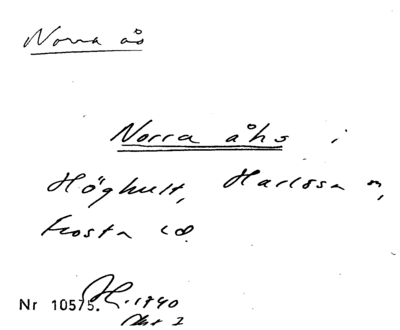 Norra ås
Norra åhs i
Höghult, Harlösa n,
Frosta
Nr 10575. 1940